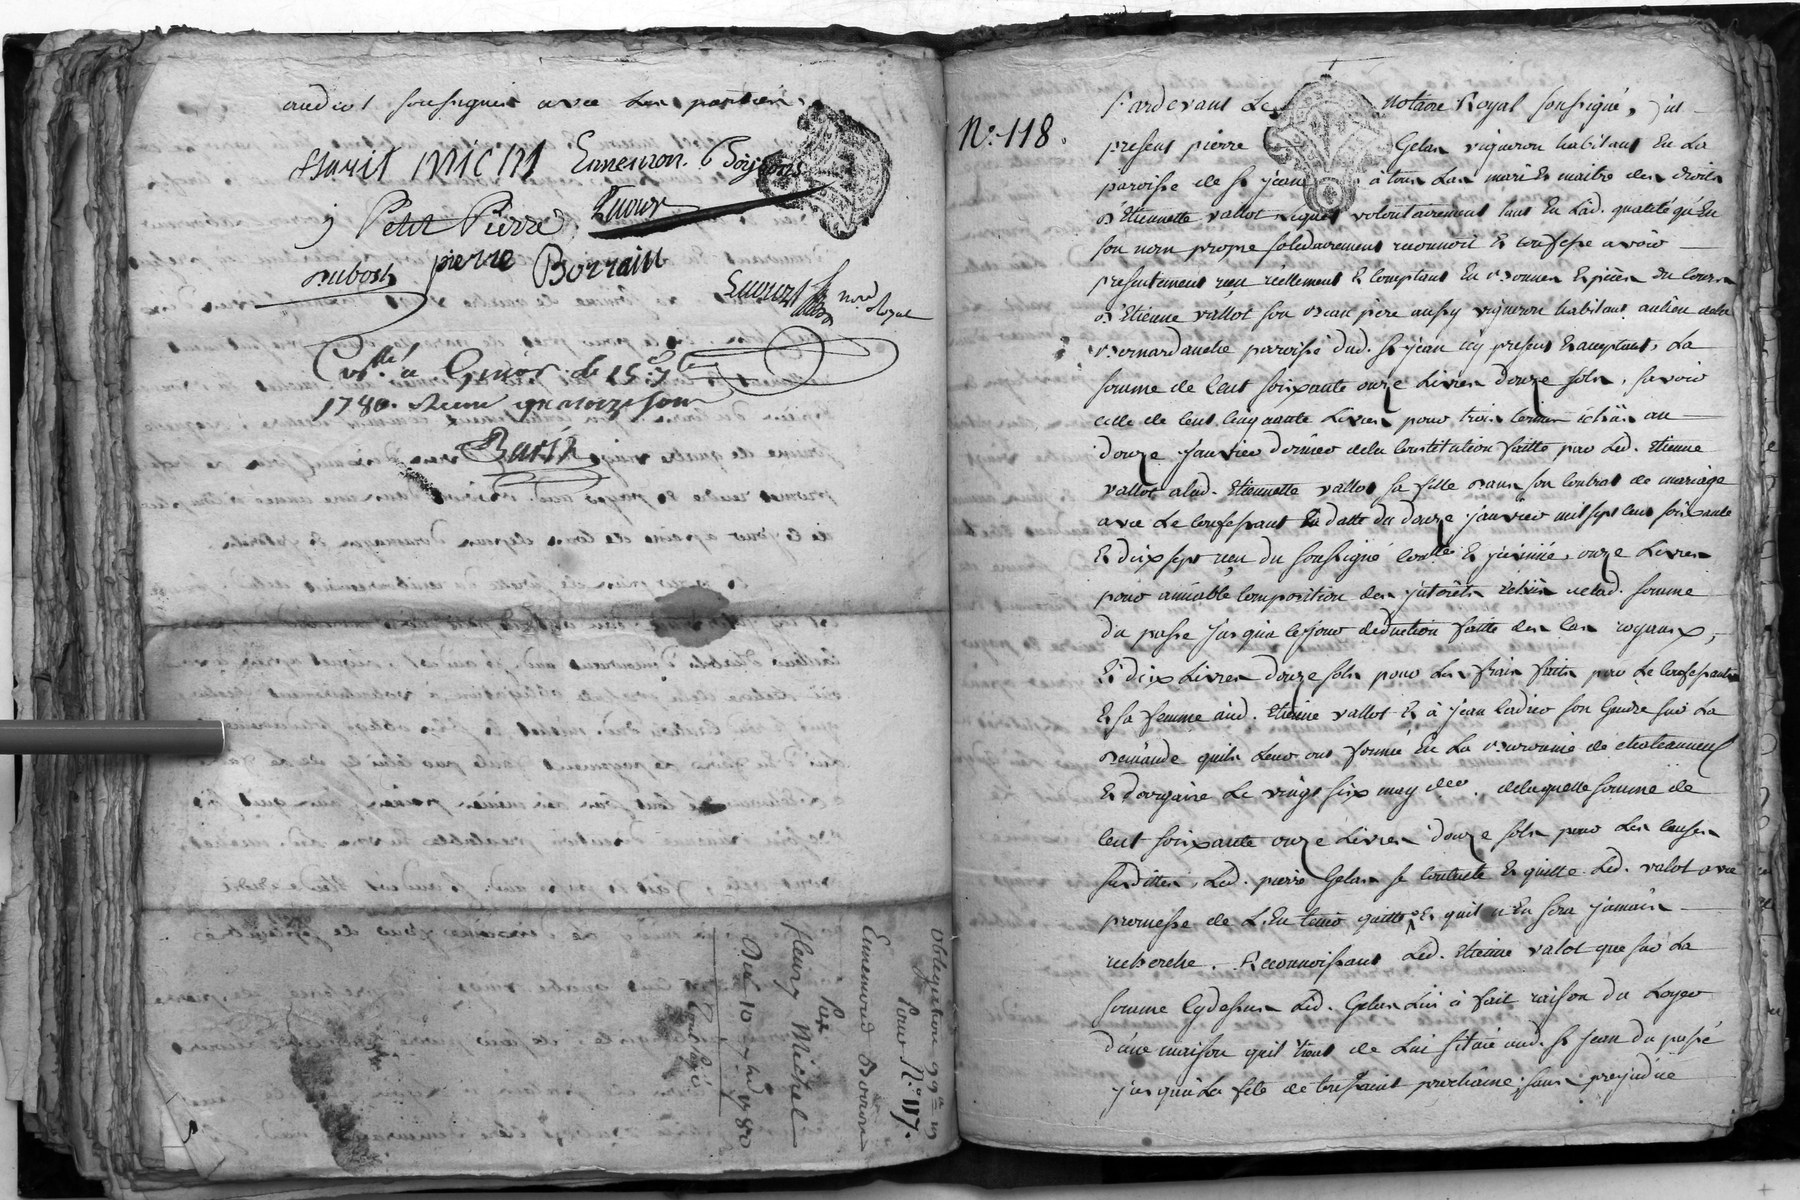 audiot soussignes avec les parties
fleurii MICHL Ennemon Borjons
j Petit Pierre
Dubost pierre Borrain
nore Royal
Conllé a Givors le 15 7bre
1780. Recu quatorze sous
Barin
obligation 99ʰ 15
Pour N.º 117.
Ennemond Borron
Par
fleury Michel
Du 10 7bre 1780
Controlé
N.º 118.
Pardevant Le notaire Royal soussigné, fut
present pierre Gelas vigneron habitant en La
paroisse de St jean à tous Las mari & maitre des droits
d'Etiennette vallot lequel volontairement tant en Lad. qualité qu'en
son nom propre solidairement reconnoit & confesse avoir
presentement reçu réellement & comptant en bonnes Espèces du Cours
d'Etienne vallot son Beau pere aussy vigneron habitant aulieu dela
Bernardanche paroisse dud. St jean icy present & acceptant, La
somme de Cent soixante onze Livres douze sols, savoir
celle de Cent Cinquante Livres pour trois termes échus au
douze janvier dernier dela Constitution faitte par Led. Etienne
vallot alad. Etiennette vallot sa fille dans son Contrat de mariage
avec Le Confessant En datte du douze janvier mil sept Cent soixante
& dix sept reçu du soussigné Contllé & jnsinüé, onze Livres
pour amiable Composition des jntérêts échus de lad. somme
du passé jusqu'a ce jour deduction faitte des Cas royaux,
& dix Livres douze sols pour Les frais faits par Le Confessant
& sa femme aud. Etienne vallot & à jean Cadier son Gendre sur La
demande quils Leur ont formé En La Baronnie de chateauneuf
& dargoire Le vingt six may der. delaquelle somme de
Cent soixante onze Livres douze sols pour Les Causes
susdittes, Led. pierre Gelas se Contente & quitte Led. valot avec
promesse de L'En tenir quitte & quil n'En sera jamais
recherché. Reconnoissant Led. Etienne valot que sur La
somme Cydessus Led. Gelas Lui à fait raison du Loyer
d'une maison quil tient de Lui sitüée aud. St jean du passé
jusqu'à La fête de toussaint prochaine, sans prejudice